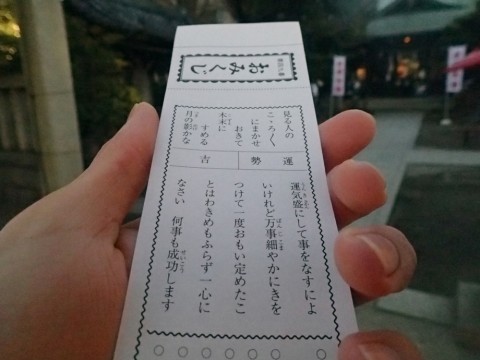 おみくじ
見る人の
こゝろ〱
にまかせ
おきて
木末に
すめる
月の影かな
運勢
吉
運気盛にして事をなすによ
いけれど万事細やかにきを
つけて一度おもい定めたこ
とはわきめもふらず一心に
なさい 何事も成功します